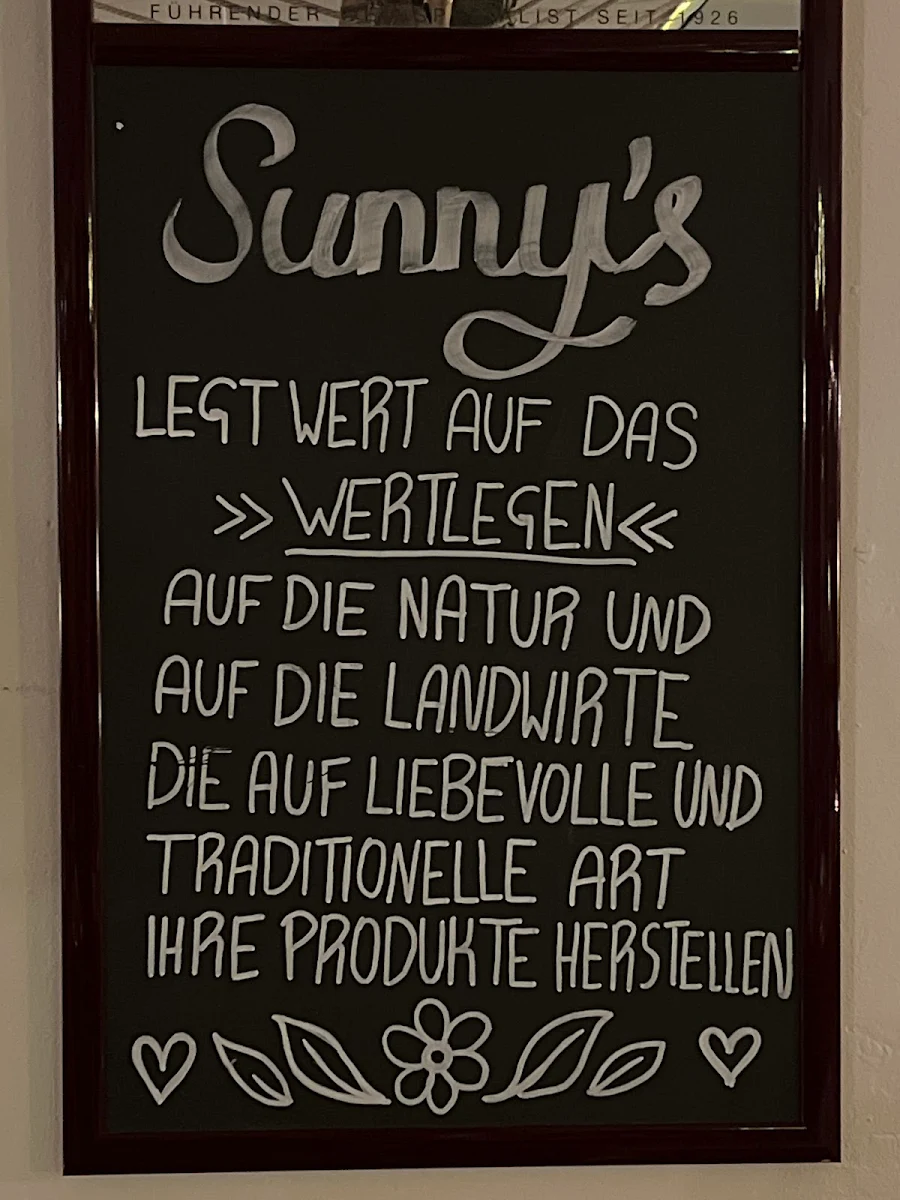 FÜHRENDER SEIT 1926
Sunny's
LEGT WERT AUF DAS
>> WERTLEGEN <<
AUF DIE NATUR UND
AUF DIE LANDWIRTE
DIE AUF LIEBEVOLLE UND
TRADITIONELLE ART
IHRE PRODUKTE HERSTELLEN